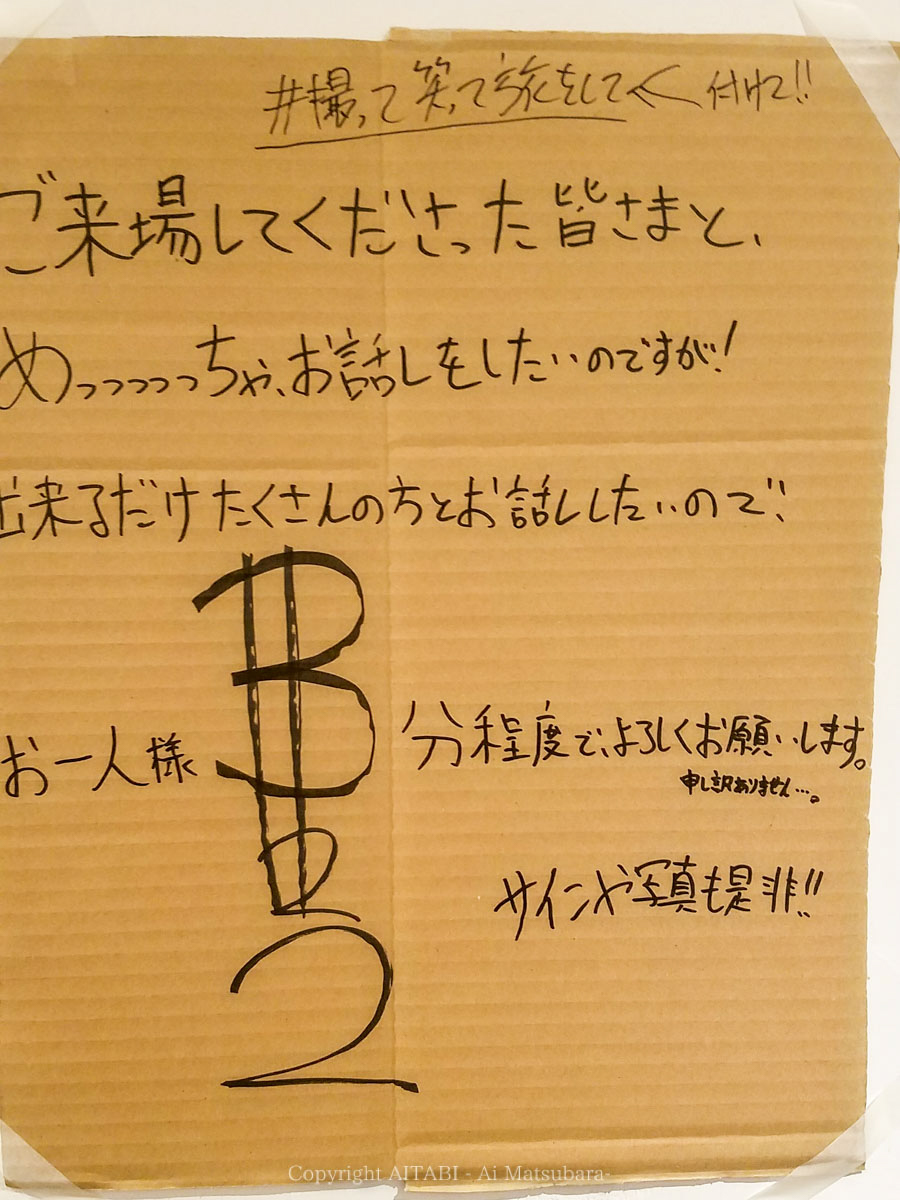 #撮って笑って旅をして← 付けて!!
ご来場してくださった皆さまと、
めっっっっっちゃ、お話しをしたいのですが!
出来るだけたくさんの方とお話ししたいので、
お一人様 3 2 2 分程度で、よろしくお願いします。
申し訳ありません…。
サインや写真も是非!!
Copyright AITABI - Ai Matsubara-